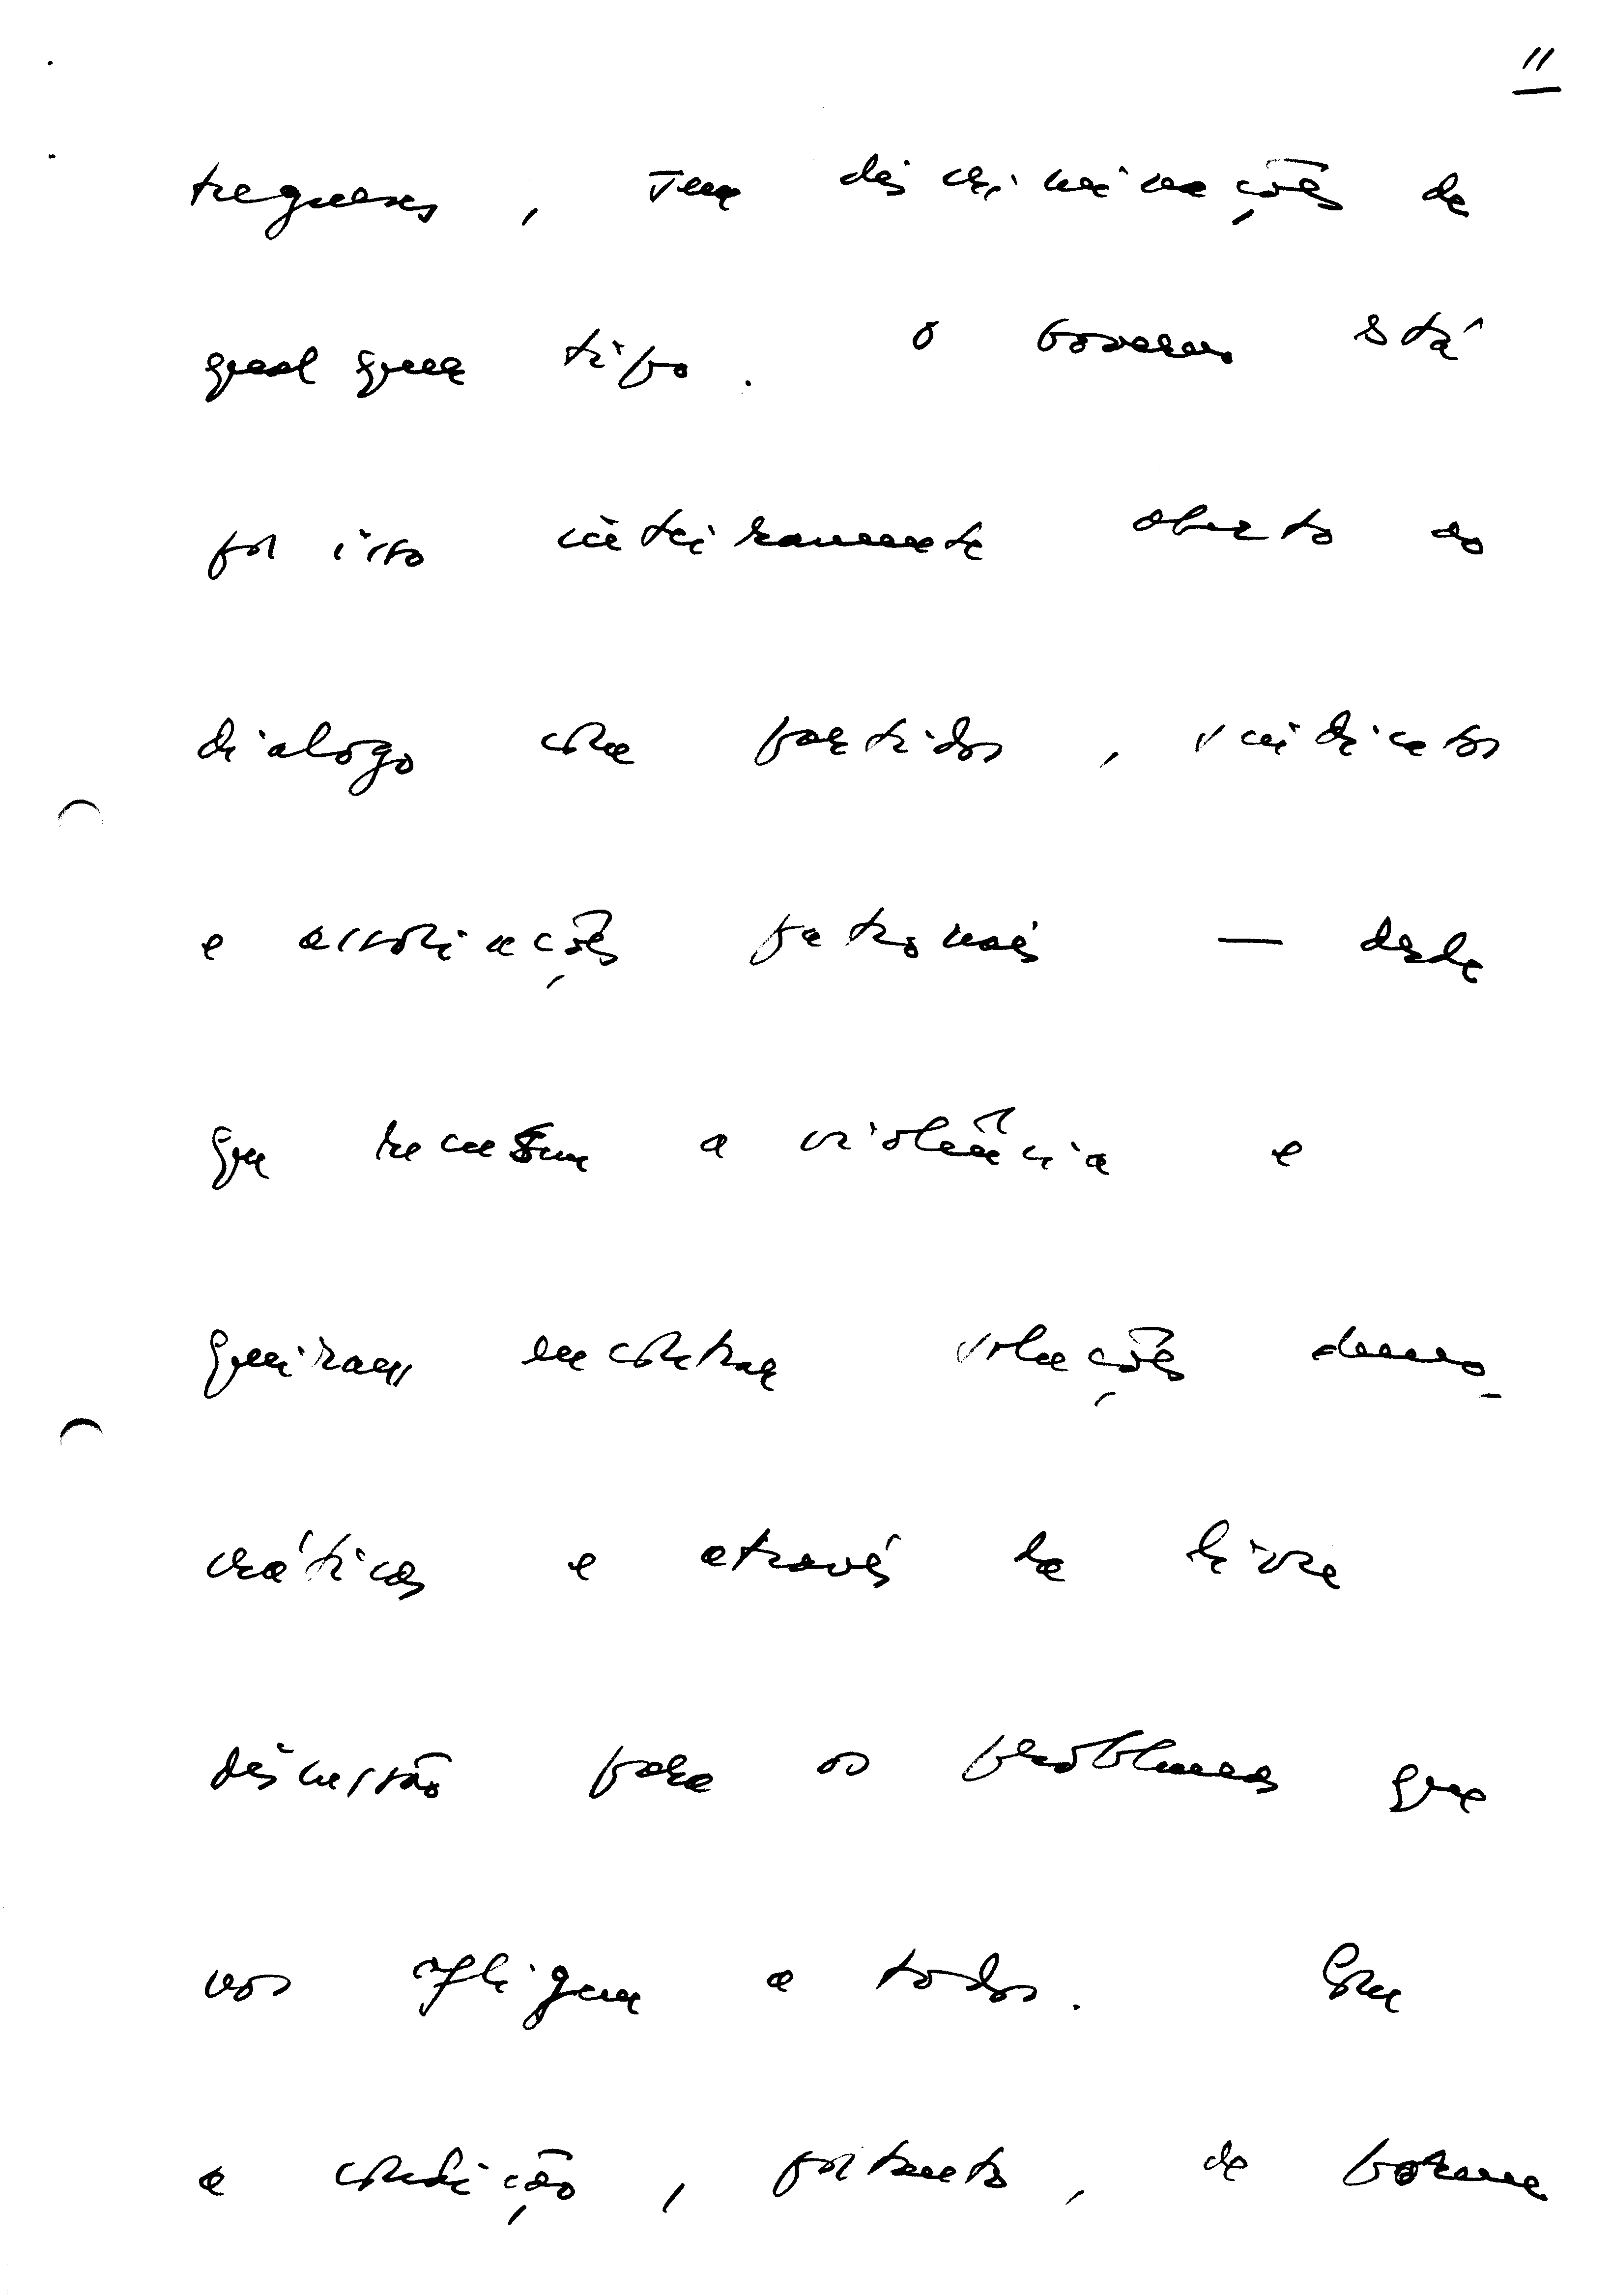 11
tugueses, sem discriminações de
qualquer tipo. O Governo está
por isso inteiramente aberto ao
dialogo com partidos, sindicatos
e associações patronais — desde
que recusem a violência e
queiram encontrar soluções demo-
cráticas e através da livre
discussão para os problemas que
nos afligem a todos. Com
a condição, portanto, de